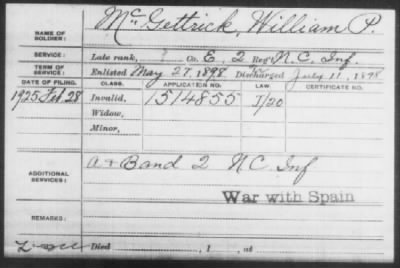 NAME OF SOLDIER: McGettrick, William P.
SERVICE: Late rank, ? Co. E, 2 Reg't N.C. Inf.
TERM OF SERVICE: Enlisted May 27, 1898, Discharged July 11, 1898
DATE OF FILING. CLASS. APPLICATION NO. LAW. CERTIFICATE NO.
1925 Feb. 28 Invalid, 1514855 J/20
Widow,
Minor,
ADDITIONAL SERVICES: A + Band 2 N.C. Inf
War with Spain
REMARKS:
Died , 1 , at